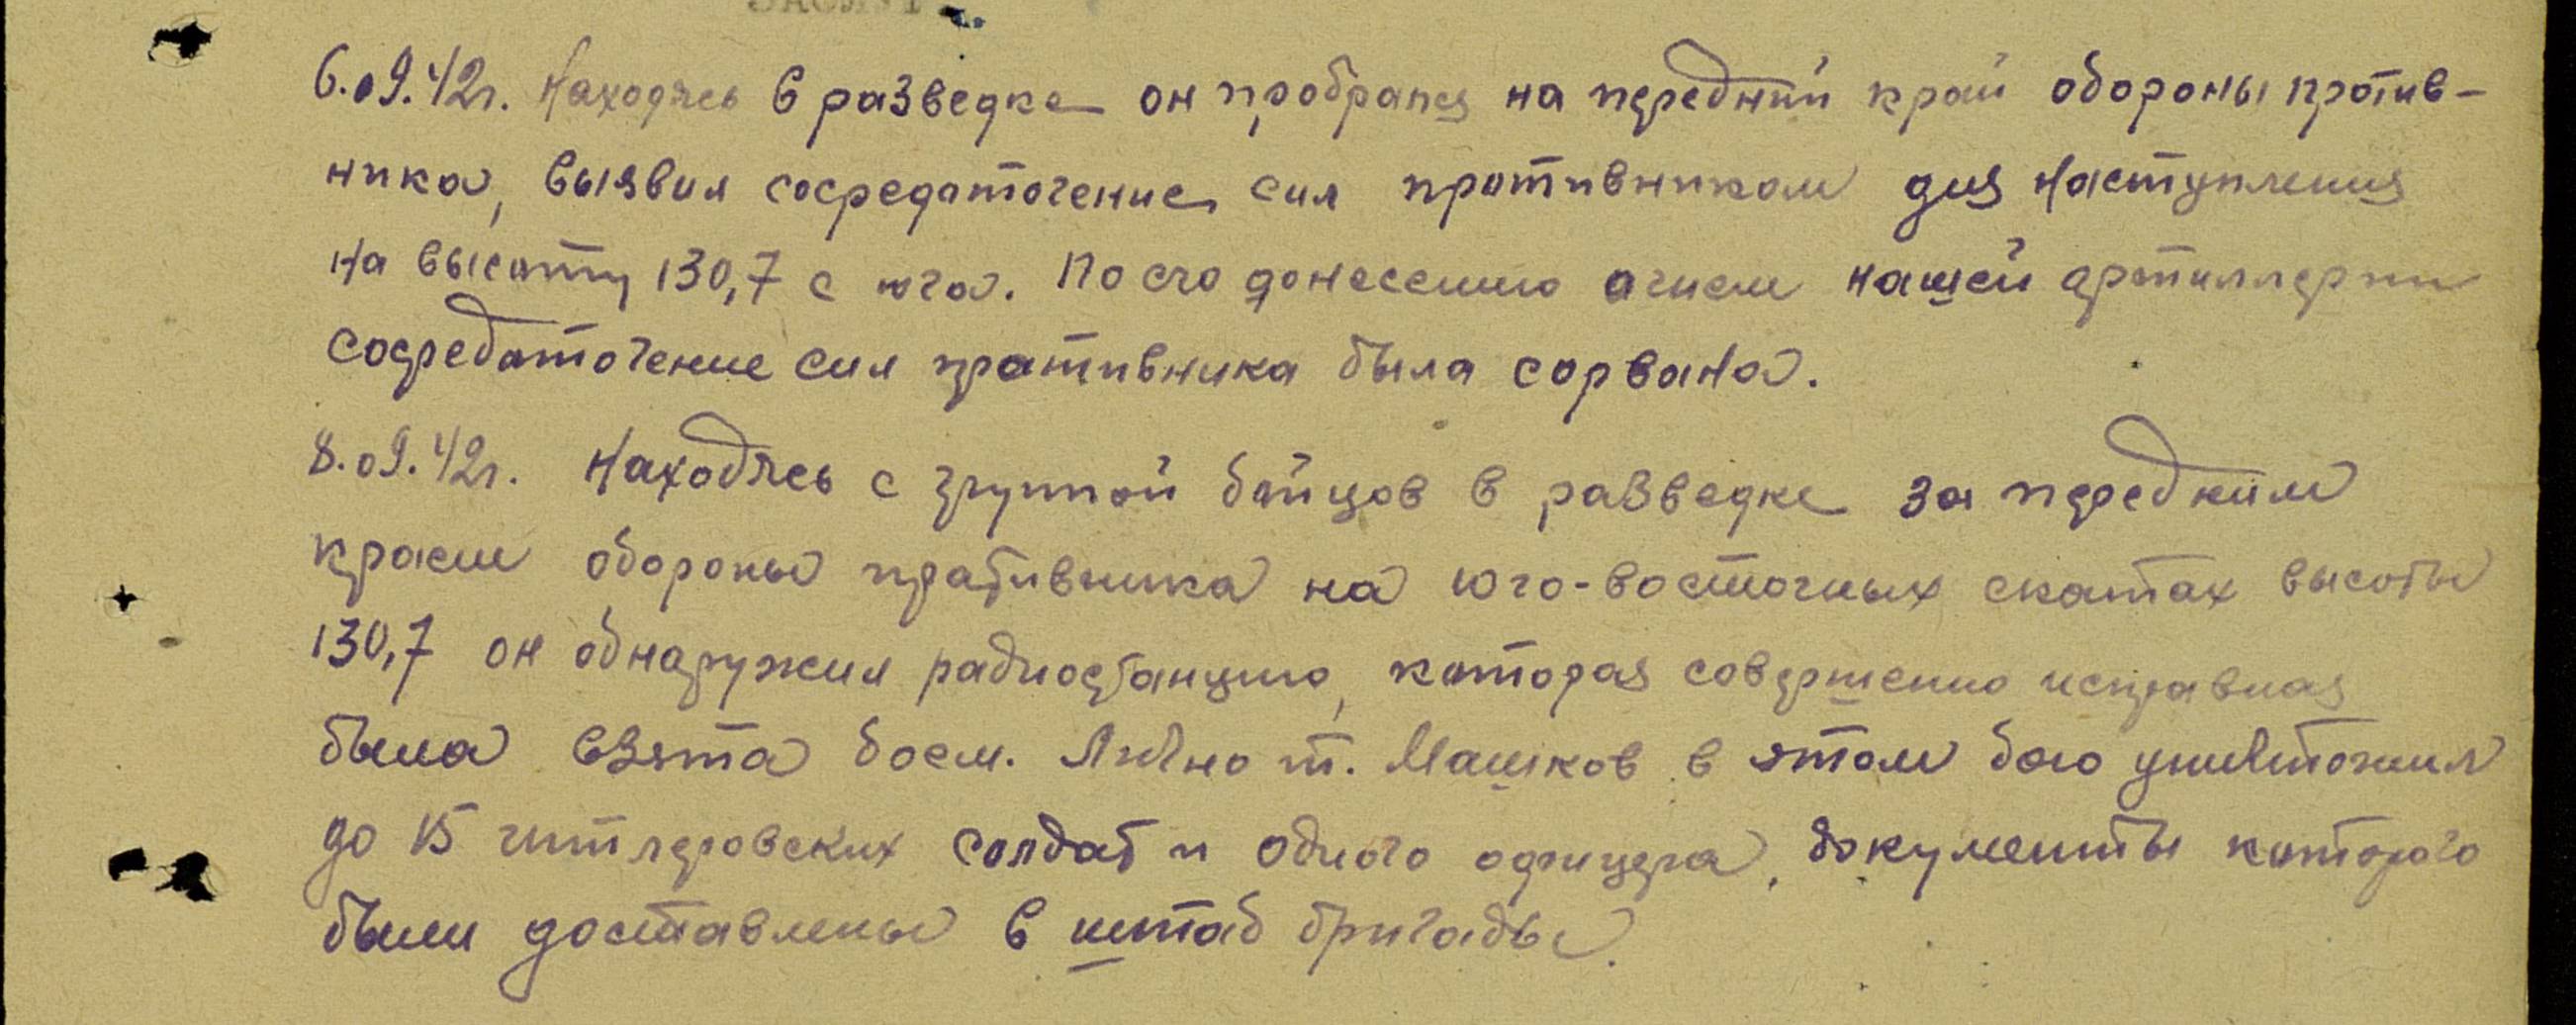 6.09.42г. Находясь в разведке он пробрался на передний край обороны против-
ника, выявил сосредоточение сил противником для наступления
на высоту 130,7 с юга. По его донесению огнем нашей артиллерии
сосредаточение сил противника была сорвана.
8.09.42г. Находясь с группой бойцов в разведке за передним
краем обороны противника на юго-восточных скатах высоты
130,7 он обнаружил радиостанцию, которая совершенно исправная
была взята боем. Лично т. Машков в этом бою уничтожил
до 15 гитлеровских солдат и одного офицера, документы которого
были доставлены в штаб бригады.